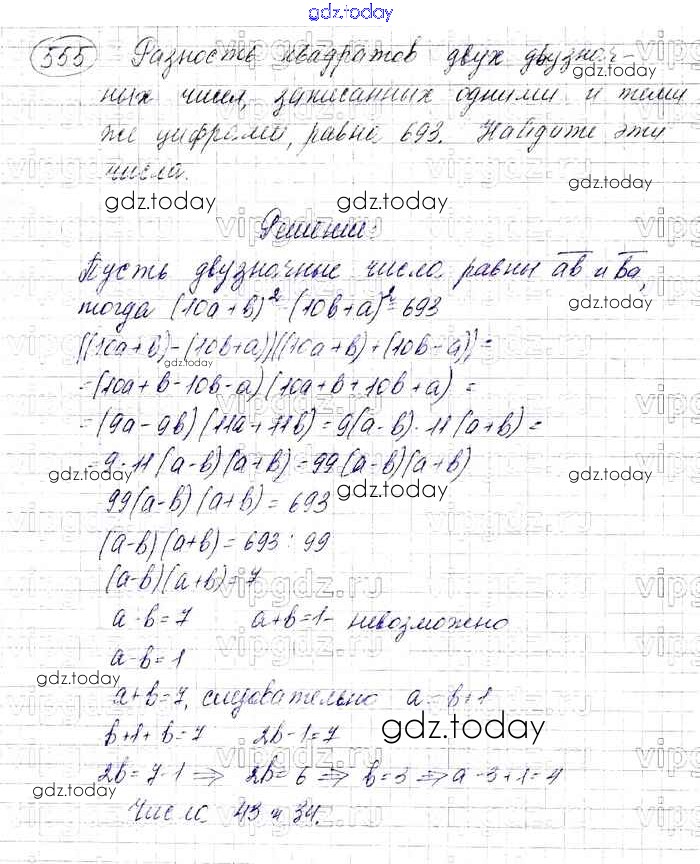 gdz.today
555 Разность квадратов двух двузнач-
ных чисел, записанных одними и теми
же цифрами, равна 693. Найдите эти
числа.
gdz.today gdz.today gdz.today
Решение:
Пусть двузначные числа равны ab и ba,
тогда (10a+b)²-(10b+a)²=693
((10a+b)-(10b+a))((10a+b)+(10b+a))=
gdz.today
=(10a+b-10b-a)(10a+b+10b+a)=
=(9a-9b)(11a+11b)=9(a-b)·11(a+b)=
=9·11(a-b)(a+b)=99(a-b)(a+b)
gdz.today gdz.today gdz.today
99(a-b)(a+b)=693
(a-b)(a+b)=693:99
(a-b)(a+b)=7
a-b=7 a+b=1- невозможно
a-b=1
gdz.today
a+b=7, следовательно a=b+1
b+1+b=7 2b-1=7
gdz.today
2b=7-1 ⇒ 2b=6 ⇒ b=3 ⇒ a-3+1=4
gdz.today gdz.today
Числа 43 и 34.
vipgdz.ru